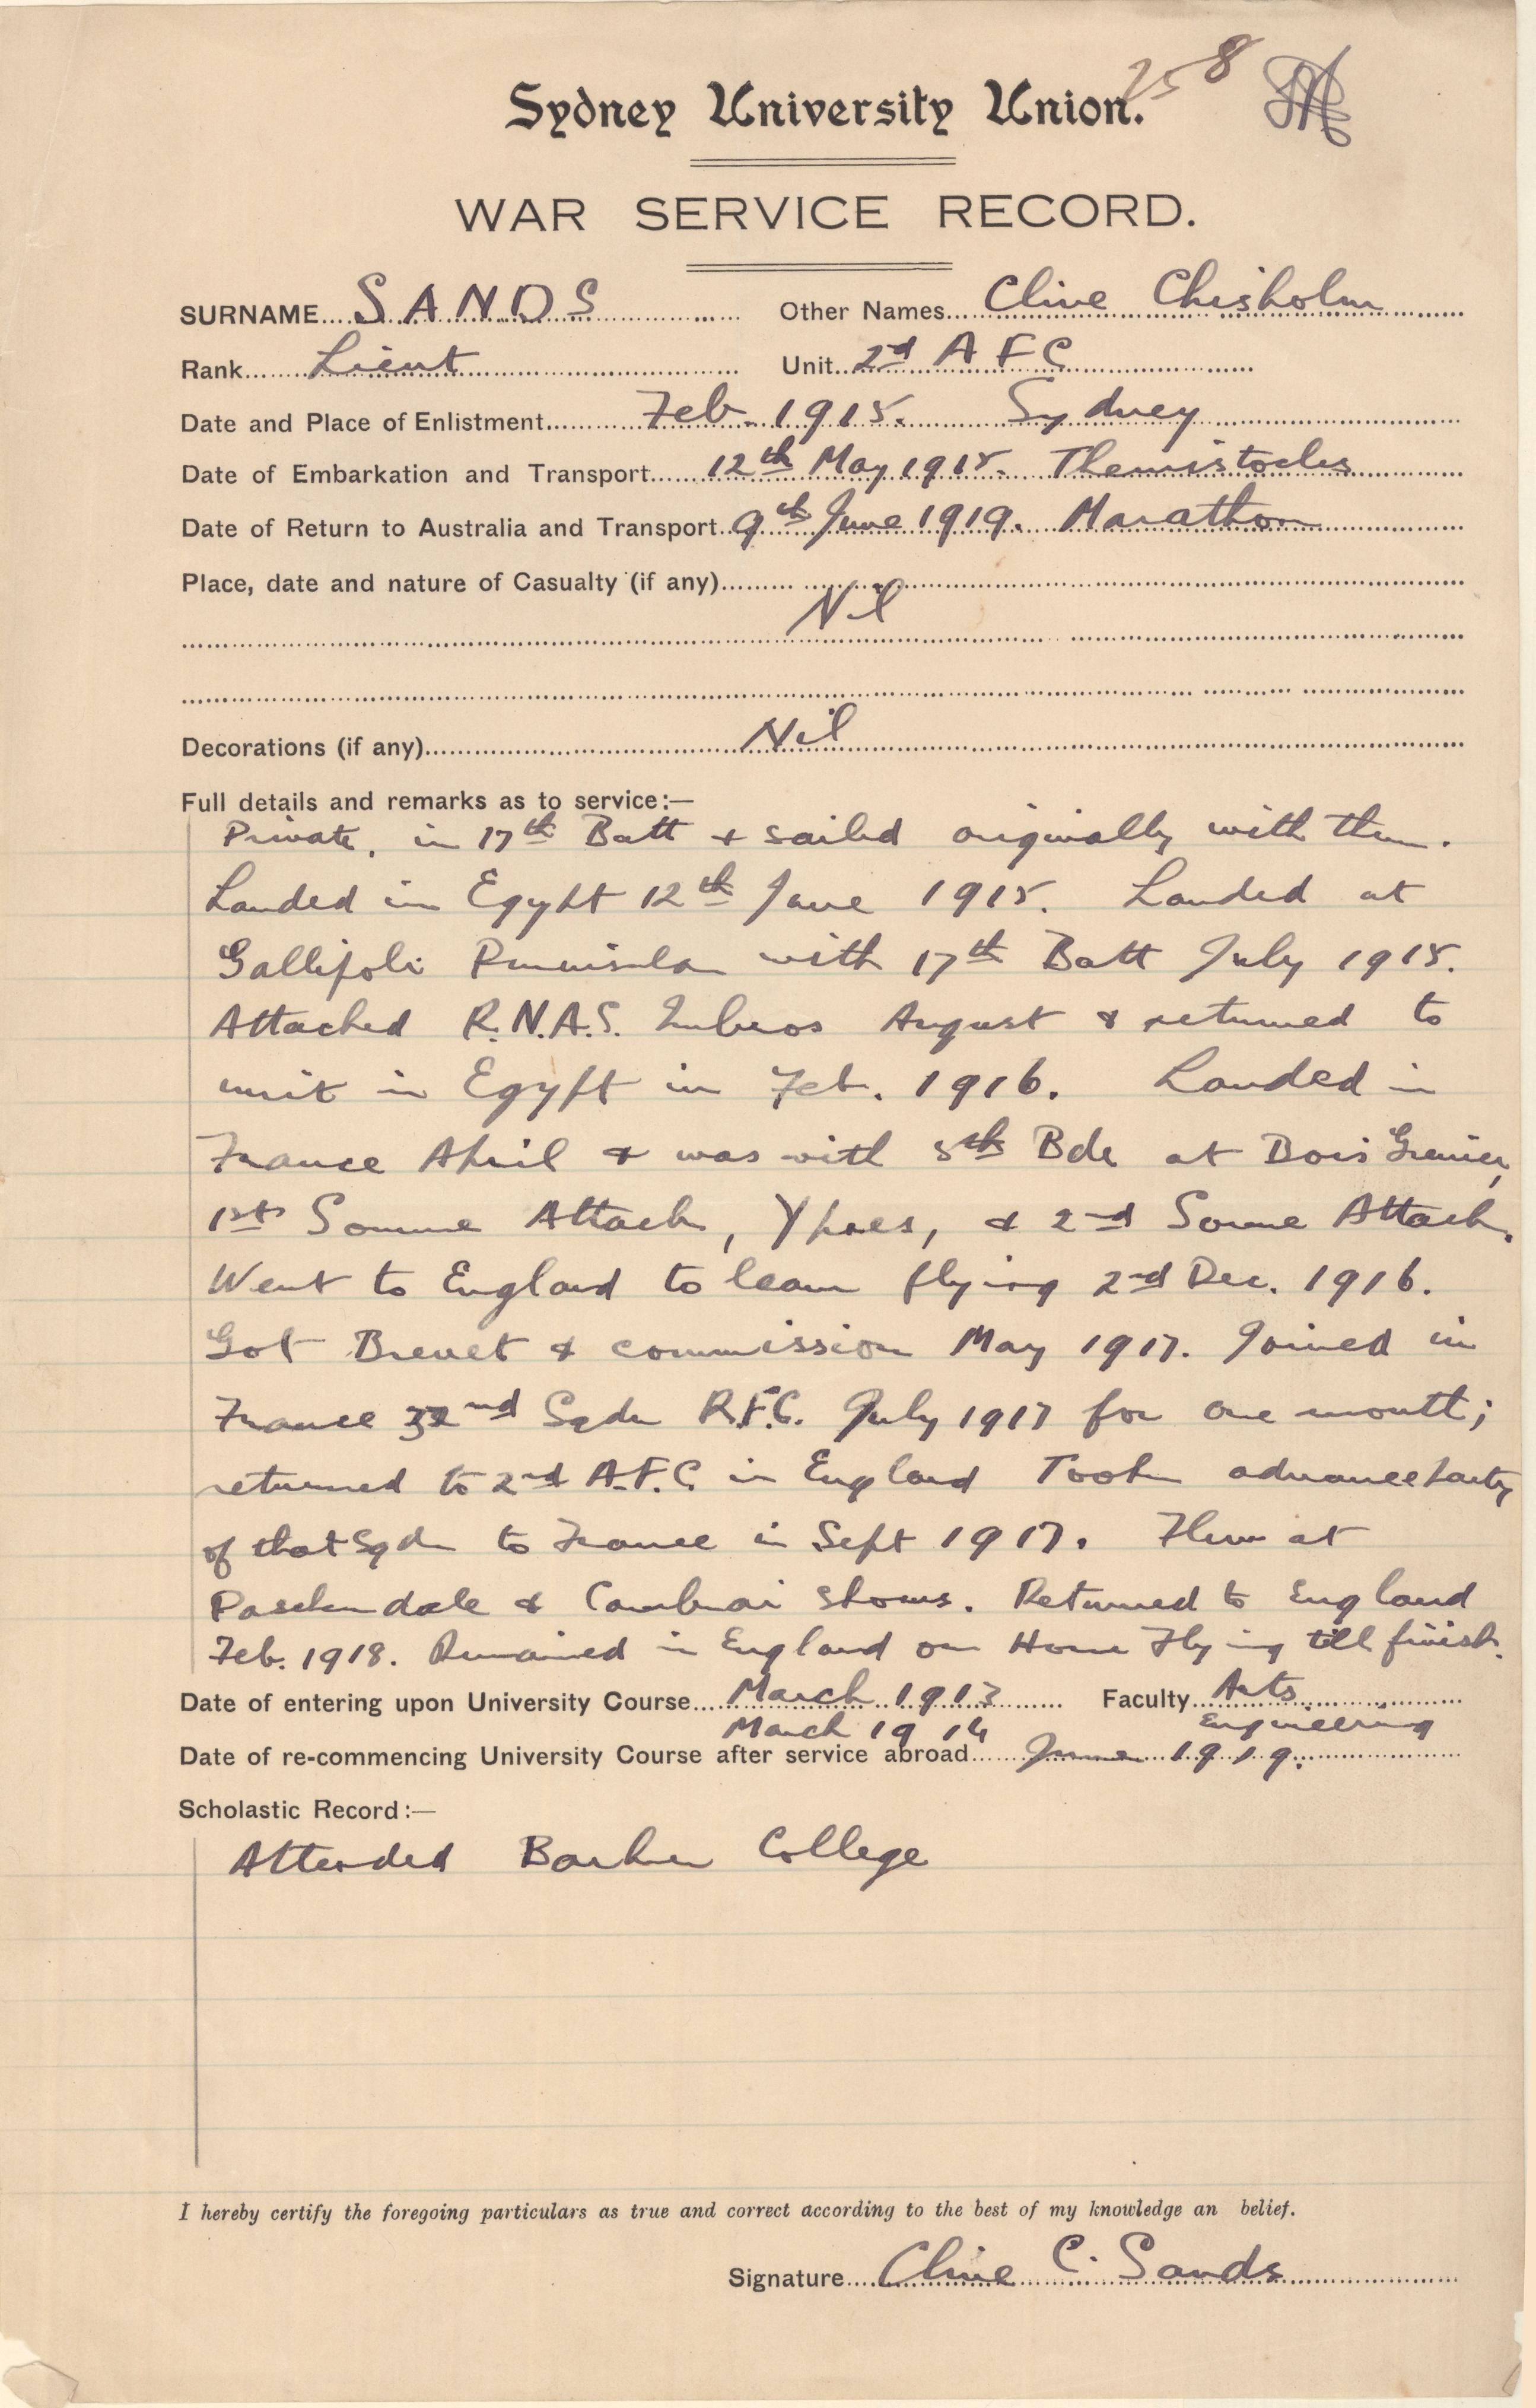 258
Sydney University Union.
WAR SERVICE RECORD.
SURNAME SANDS Other Names Clive Chisholm
Rank Lieut Unit 2nd A F C
Date and Place of Enlistment Feb. 1915. Sydney
Date of Embarkation and Transport 12th May 1915. Themistocles
Date of Return to Australia and Transport 9th June 1919. Marathon
Place, date and nature of Casualty (if any)
Nil
Decorations (if any) Nil
Full details and remarks as to service:—
Private, in 17th Batt & sailed originally with them.
Landed in Egypt 12th June 1915. Landed at
Gallipoli Peninsula with 17th Batt July 1915.
Attached R.N.A.S. Imbros August & returned to
unit in Egypt in Feb. 1916. Landed in
France April & was with 5th Bde at Bois Grenier,
1st Somme Attack, Ypres, & 2nd Somme Attack.
Went to England to learn flying 2nd Dec. 1916.
Got Brevet & commission May 1917. Joined in
France 32nd Sqdn R.F.C. July 1917 for one month;
returned to 2nd A.F.C in England Took advance party
of that Sqdn to France in Sept 1917. Flew at
Paschendale & Cambrai shows. Returned to England
Feb. 1918. Remained in England on Home Flying till finish.
Date of entering upon University Course March 1913 Faculty Arts
March 1914 Engineering
Date of re-commencing University Course after service abroad June 1919.
Scholastic Record:—
Attended Barker College
I hereby certify the foregoing particulars as true and correct according to the best of my knowledge an belief.
Signature Clive C. Sands